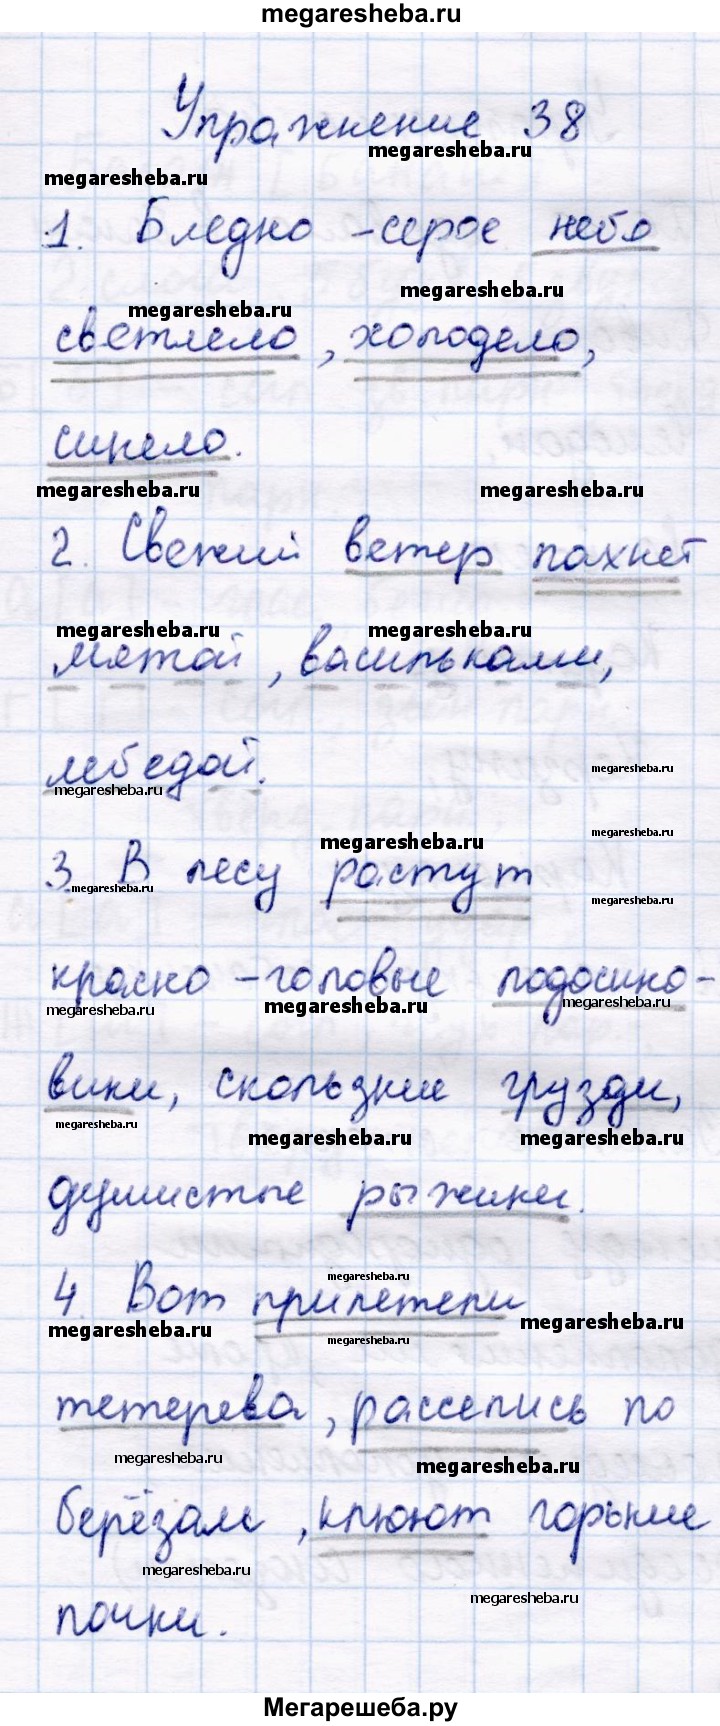 megaresheba.ru
Упражнение 38
megaresheba.ru
megaresheba.ru
1. Бледно -серое небо
megaresheba.ru
megaresheba.ru
светлело, холодело,
синело.
megaresheba.ru megaresheba.ru
2. Свежий ветер пахнет
megaresheba.ru megaresheba.ru
мятой, васильками,
megaresheba.ru
лебедой.
megaresheba.ru
megaresheba.ru
megaresheba.ru
3. В лесу растут
megaresheba.ru
megaresheba.ru
красно -головые подосино-
megaresheba.ru megaresheba.ru megaresheba.ru
вики, скользкие грузди,
megaresheba.ru
megaresheba.ru megaresheba.ru
душистые рыжики.
megaresheba.ru
4. Вот прилетели
megaresheba.ru megaresheba.ru
megaresheba.ru
тетерева, расселись по
megaresheba.ru megaresheba.ru
берёзам, клюют горькие
megaresheba.ru
megaresheba.ru
почки.
Мегарешеба.ру